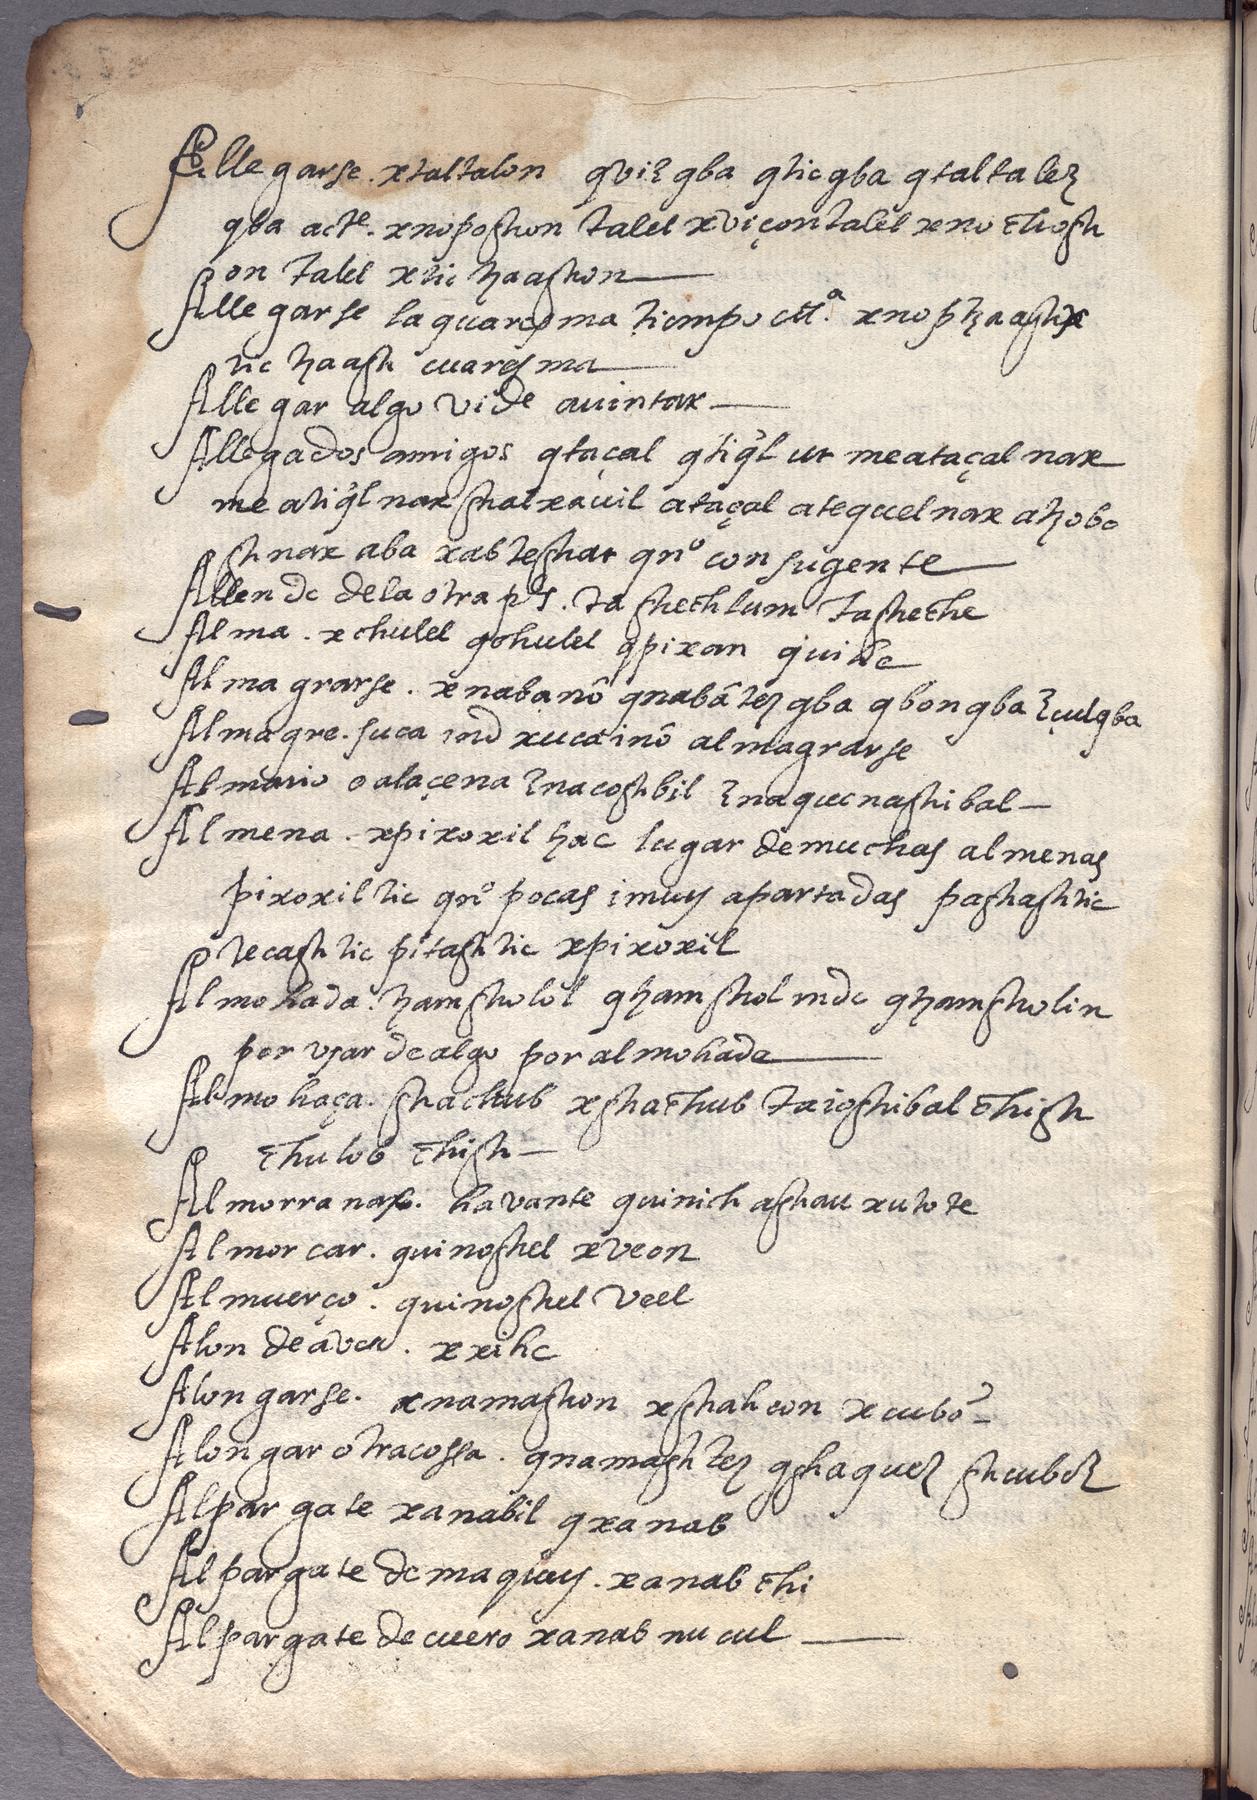 Allegarse. xtaltalon qviꜫ qba qticqba qtaltaleꜫ
qba acte. xnopoghon talel xviçontalel xno chogh
on talel xtic haaghon
Allegarse la quaresma tiempo ett.a xnophaagh x
tic haagh cuaresma
Allegar algo vide auintar
Allegados amigos qtaçal qtiql ut meataçal nax
me atiql nax ghalxauil ataçal atequel nax ahobo
ghnax aba xabteghat qno con sugente
Allende dela otra pte. taghechlum tagheche
Alma. xchulel qchulel qpixan quine
Almagrarse. xnabanô qnabâteꜫ qba qbonqba ꜫçulqba
Almagre. suca ind xucainô almagrarse
Almario o alaçena ꜫnacoghbil ꜫnaquenaghibal
Almena. xpixoxil hac lugar demuchas almenas
pixoxiltic qno pocas i muy apartadas paghaghtic
tecaghtic pitaghtic xpixoxil
Almohada. hamgholol qhamghol inde qhamgholin
por usar de algo por almohada
Almohaça. ghachub xghachub taioghibal chigh
chulob chigh
Almorranas. havante quinich aghau xutote
Almorcar. quinoghel xveon
Almuerço. quinoghel veel
Alon de aven. xxihc
Alongarse. xnamaghon xghahcon xcubô
Alongar otracossa. qnamaghteꜫ qghaqueꜫ ghcuboꜫ
Alpargate xanabil qxanab
Alpargate de maquey. xanab chi
Alpargate de cuero xanab nucul